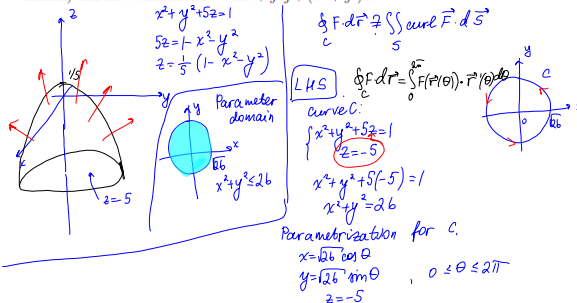 x²+y²+5z=1
5z=1-x²-y²
z=1/5 (1-x²-y²)
z
1/5
y
x
z=-5
Parameter
domain
y
x
√26
x²+y²≤26
∮_C F·dr⃗ ≟ ∬_S curl F⃗·dS⃗
LHS
∮_C F·dr⃗=∫_0^2π F(r⃗(θ))·r⃗'(θ)dθ
curve C:
{ x²+y²+5z=1
z=-5
x²+y²+5(-5)=1
x²+y²=26
y
C
0
√26
Parametrization for C.
x=√26 cosθ
y=√26 sinθ , 0≤θ≤2π
z=-5